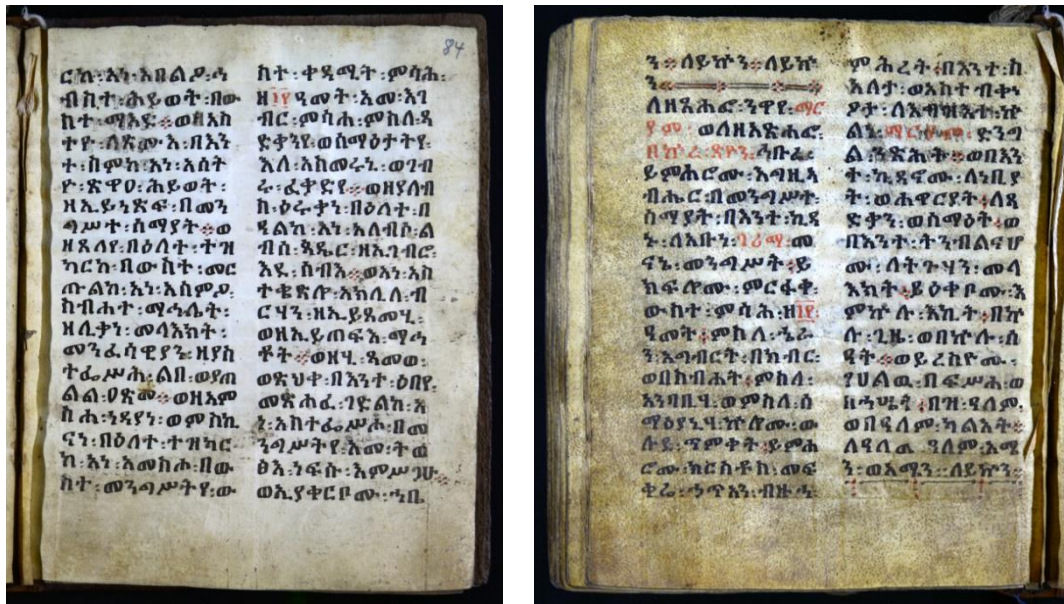 84
ርከ፡አነ፡አበልዖ፡ኅ
ብስተ፡ሕይወት፡በው
ስተ፡ማእዱ፡ወዘአስ
ተየ፡ለጽሙእ፡በእን
ተ፡ስምከ፡አነ፡አሰት
ዮ፡ጽዋዐ፡ሕይወት፡
ዘኢይነጽፍ፡በመን
ግሥተ፡ሰማያት፡ወ
ዘጸለየ፡በዕለተ፡ተዝ
ካርከ፡በውስተ፡መር
ጡልከ፡አነ፡አሰምዖ፡
ስብሐተ፡ማኅሌት፡
ዘሊቃነ፡መላእክት፡
መንፈሳዊያን፡ዘያስ
ተፌሥሕ፡ልበ፡ወያጠ
ልል፡ዐጽመ፡ወዘአም
ስሐ፡ነዳያነ፡ወምስኪ
ናነ፡በዕለተ፡ተዝካር
ከ፡አነ፡አመስሖ፡በው
ስተ፡መንግሥትየ፡ው
ስተ፡ቀዳሚት፡ምሳሕ፡
ዘ፲፻ዓመት፡አመ፡እገ
ብር፡ምሳሐ፡ምስለ፡ጻ
ድቃንየ፡ወሰማዕታትየ፡
እለ፡አስመሩኒ፡ወገብ
ሩ፡ፈቃድየ፡ወዘያለብ
ስ፡ዕሩቃነ፡በዕለተ፡በ
ዓልከ፡አነ፡አለብሶ፡ል
ብሰ፡ጻዴር፡ዘኢገብሮ፡
እዴ፡ሰብእ፡ወአነ፡አስ
ተቄጽሎ፡አክሊለ፡ብ
ርሃን፡ዘኢይጸመሂ፡
ወዘኢይጠፍእ፡ማኅ
ቶት፡ወዘሂ፡ጻመወ፡
ወጽህቀ፡በእንተ፡ዕበየ፡
መጽሐፈ፡ገድልከ፡አ
ነ፡አስተፌሥሖ፡በመ
ንግሥትየ፡አመ፡ትወ
ፅእ፡ነፍሱ፡እምሥጋሁ
ወኢያቀርቦሙ፡ኀቤ
ን፡ለይኵን፡ለይኵ
ን
ለዘጸሐፎ፡ንዋየ፡ማር
ያም፡ወለዘአጽሐፎ፡
በኵረ፡ጽዮን፡ኅቡረ፡
ይምሐሮሙ፡እግዚአ
ብሔር፡በመንግሥተ፡
ሰማያት፡በእንተ፡ኪዳ
ኑ፡ለአቡነ፡ገሪማ፡መ
ናኔ፡መንግሥት፡ይ
ክፍሎሙ፡ምርፋቀ፡
ውስተ፡ምሳሕ፡ዘ፲፻
ዓመት፡ምስለ፡ኄራ
ን፡አግብርት፡በክብር፡
ወበስብሐት፡ምስለ፡
አንባቢሃ፡ወምስለ፡ሰ
ማዕያኒሃ፡ኵሎሙ፡ው
ሉደ፡ጥምቀት፡ይምሐ
ሮሙ፡ክርስቶስ፡መፍ
ቀሬ፡ኃጥአን፡ብዙኀ፡
ምሕረት፡በእንተ፡ስ
እለታ፡ወአስተብቍዖ
ታ፡ለእግዝእተ፡ኵ
ልነ፡ማርያም፡ድንግ
ል፡ንጽሕት፡ወበእን
ተ፡ኪዳኖሙ፡ለነቢያ
ት፡ወሐዋርያት፡ለጻ
ድቃን፡ወሰማዕት፡ወ
በእንተ፡ትንብልናሆ
ሙ፡ለትጉሃን፡መላ
እክት፡ይዕቀቦሙ፡እ
ምኵሉ፡እኪት፡በኵ
ሉ፡ጊዜ፡ወበኵሉ፡ሰ
ዓት፡ወይረስዮሙ፡
የሀልዉ፡በፍሥሐ፡ወ
በኀሤት፡በዝ፡ዓለም፡
ወበዓለም፡ካልእት፡
ለዓለመ፡ዓለም፡አሜ
ን፡ወአሜን፡ለይኵን